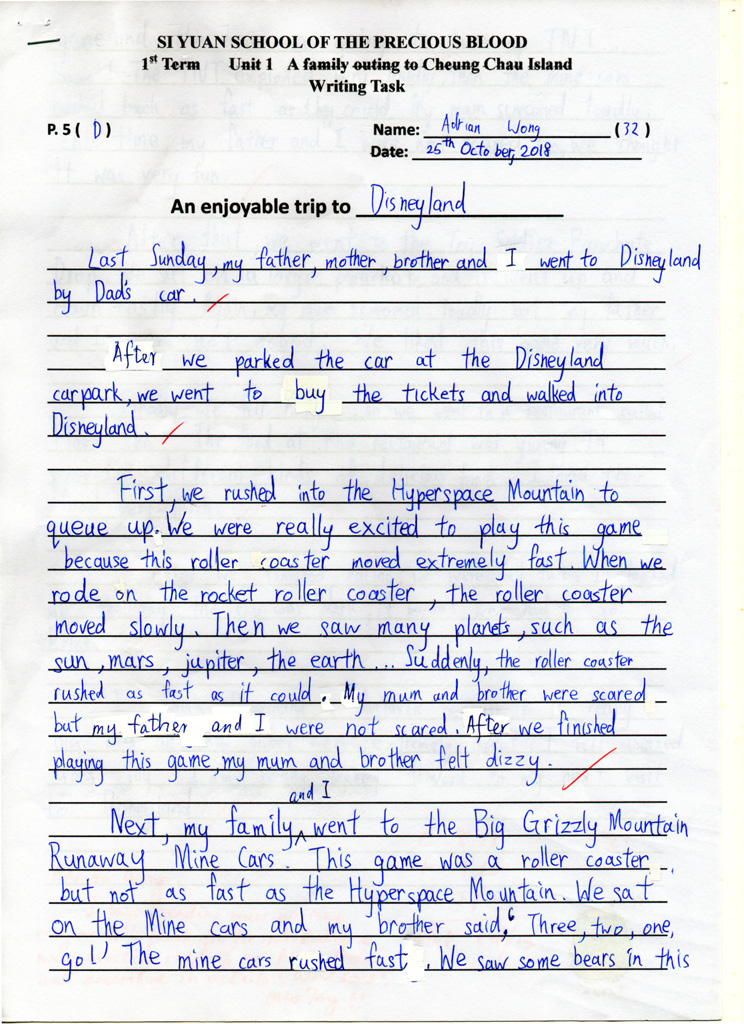 SI YUAN SCHOOL OF THE PRECIOUS BLOOD
1st Term Unit 1 A family outing to Cheung Chau Island
Writing Task
P. 5 ( D ) Name: Adrian Wong ( 32 )
Date: 25th October, 2018
An enjoyable trip to Disneyland
Last Sunday, my father, mother, brother and I went to Disneyland
by Dad's car.
After we parked the car at the Disneyland
carpark, we went to buy the tickets and walked into
Disneyland.
First, we rushed into the Hyperspace Mountain to
queue up. We were really excited to play this game
because this roller coaster moved extremely fast. When we
rode on the rocket roller coaster, the roller coaster
moved slowly. Then we saw many planets, such as the
sun, mars, jupiter, the earth ... Suddenly, the roller coaster
rushed as fast as it could. My mum and brother were scared
but my father and I were not scared. After we finished
playing this game, my mum and brother felt dizzy.
and I
Next, my family ^ went to the Big Grizzly Mountain
Runaway Mine Cars. This game was a roller coaster
but not as fast as the Hyperspace Mountain. We sat
on the Mine cars and my brother said, ' Three, two, one,
go!' The mine cars rushed fast. We saw some bears in this